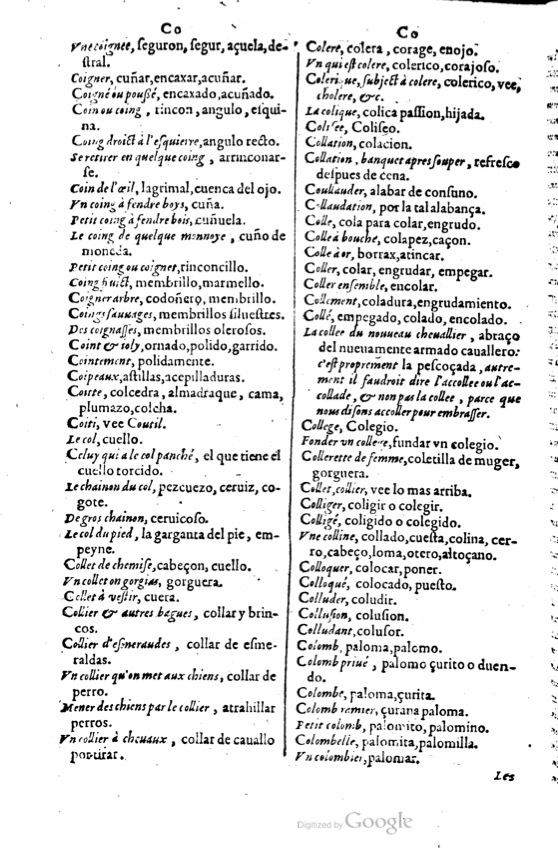 Co
Vne coignée, ſeguron, ſegur, açuela, de-
ſtral.
Coigner, cuñar, encaxar, acuñar.
Coigné ou pouſsé, encaxado, acuñado.
Coin ou coing, rincon, angulo, eſqui-
na.
Coing droict à l'eſquierre, angulo recto.
Se retirer en quelque coing, arrinconar-
ſe.
Coin de l'œil, lagrimal, cuenca del ojo.
Vn coing à fendre boys, cuña.
Petit coing à fendre bois, cuñuela.
Le coing de quelque monnoye, cuño de
moneda.
Petit coing ou coignet, rinconcillo.
Coing fruict, membrillo, marmello.
Coigner arbre, codoñero, membrillo.
Coings ſauuages, membrillos ſilueſtres.
Des coignaſſes, membrillos oleroſos.
Coint & ioly, ornado, polido, garrido.
Cointement, polidamente.
Coipeaux, aſtillas, acepilladuras.
Coitte, colcedra, almadraque, cama,
plumazo, colcha.
Coiti, vee Coutil.
Le col, cuello.
Celuy qui a le col panché, el que tiene el
cuello torcido.
Le chainon du col, pezcuezo, ceruiz, co-
gote.
De gros chainon, ceruicoſo.
Le col du pied, la garganta del pie, em-
peyne.
Collet de chemiſe, cabeçon, cuello.
Vn collet on gorgias, gorguera.
Collet à veſtir, cuera.
Collier & autres bagues, collar y brin-
cos.
Collier d'eſmeraudes, collar de eſme-
raldas.
Vn collier qu'on met aux chiens, collar de
perro.
Mener des chiens par le collier, atrahillar
perros.
Vn collier à cheuaux, collar de cauallo
por tirar.
Co
Colere, colera, corage, enojo.
Vn qui eſt colere, colerico, corajoſo.
Colerique, ſubject à colere, colerico, vee,
cholere, &c.
La colique, colica paſſion, hijada.
Coliſee, Coliſeo.
Collation, colacion.
Collation, banquet apres ſouper, refreſco
deſpues de cena.
Coullauder, alabar de conſuno.
Collaudation, por la tal alabança.
Colle, cola para colar, engrudo.
Colle à bouche, colapez, caçon.
Colle à or, borrax, atincar.
Coller, colar, engrudar, empegar.
Coller enſemble, encolar.
Collement, coladura, engrudamiento.
Collé, empegado, colado, encolado.
La collee du nouueau cheuallier, abraço
del nueuamente armado cauallero:
c'eſt proprement la peſcoçada, autre-
ment il faudroit dire l'accollee ou l'ac-
collade, & non pas la collee, parce que
nous diſons accoller pour embraſſer.
College, Colegio.
Fonder vn college, fundar vn colegio.
Collerette de femme, coletilla de muger,
gorguera.
Collet, collier, vee lo mas arriba.
Colliger, coligir o colegir.
Colligé, coligido o colegido.
Vne colline, collado, cueſta, colina, cer-
ro, cabeço, loma, otero, altoçano.
Colloquer, colocar, poner.
Colloqué, colocado, pueſto.
Colluder, coludir.
Colluſion, coluſion.
Colludant, coluſor.
Colomb, paloma, palomo.
Colomb priué, palomo çurito o duen-
do.
Colombe, paloma, çurita.
Colomb ramier, çurana paloma.
Petit colomb, palomito, palomino.
Colombelle, palomita, palomilla.
Vn colombier, palomar.
Les
Digitized by Google